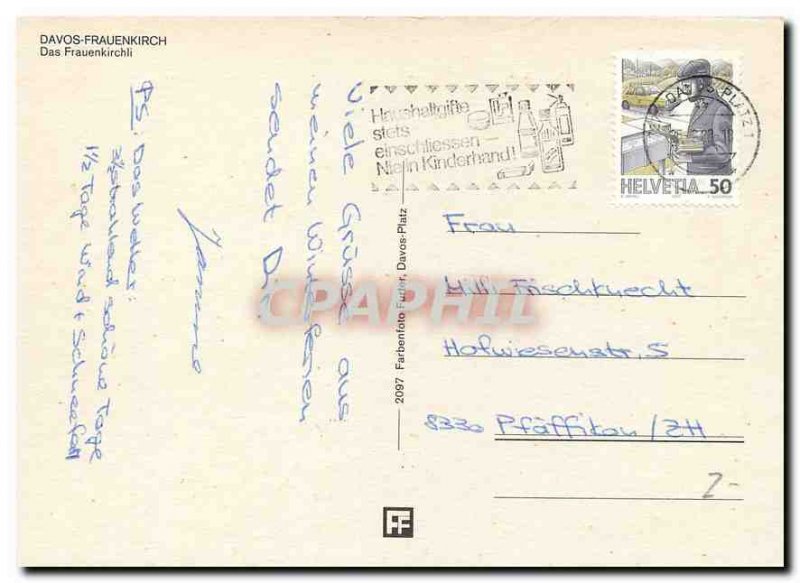 DAVOS-FRAUENKIRCH
Das Frauenkirchli
Haushaltgifte
stets
einschliessen –
Nie in Kinderhand!
DAVOS PLATZ 1
HELVETIA 50
Viele Grüsse aus
meinen Winterferien
sendet Dir
PS: Das Wetter:
strahlend schöne Tage
1½ Tage Wind + Schneefall
2097 Farbenfoto Furter, Davos-Platz
Frau
Milli Frischknecht
Hofwiesenstr. 5
8330 Pfäffikon/ZH
2-
FF
CPAPHIL